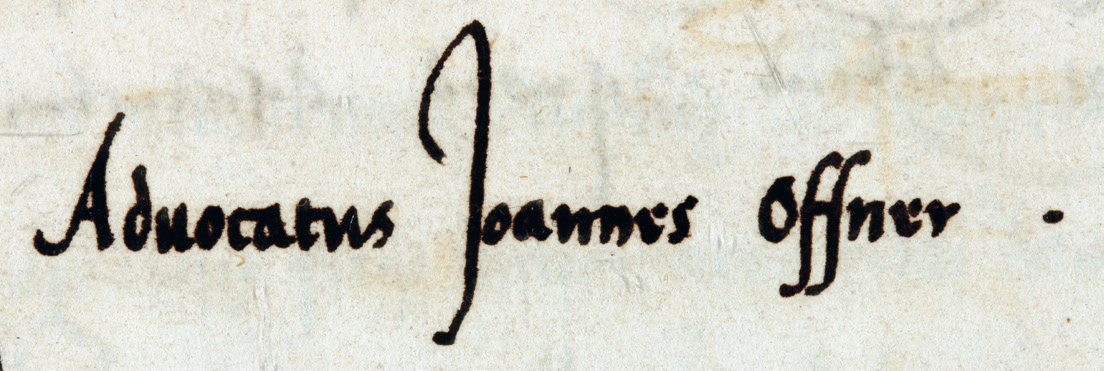 Advocatus Joannes Offner .